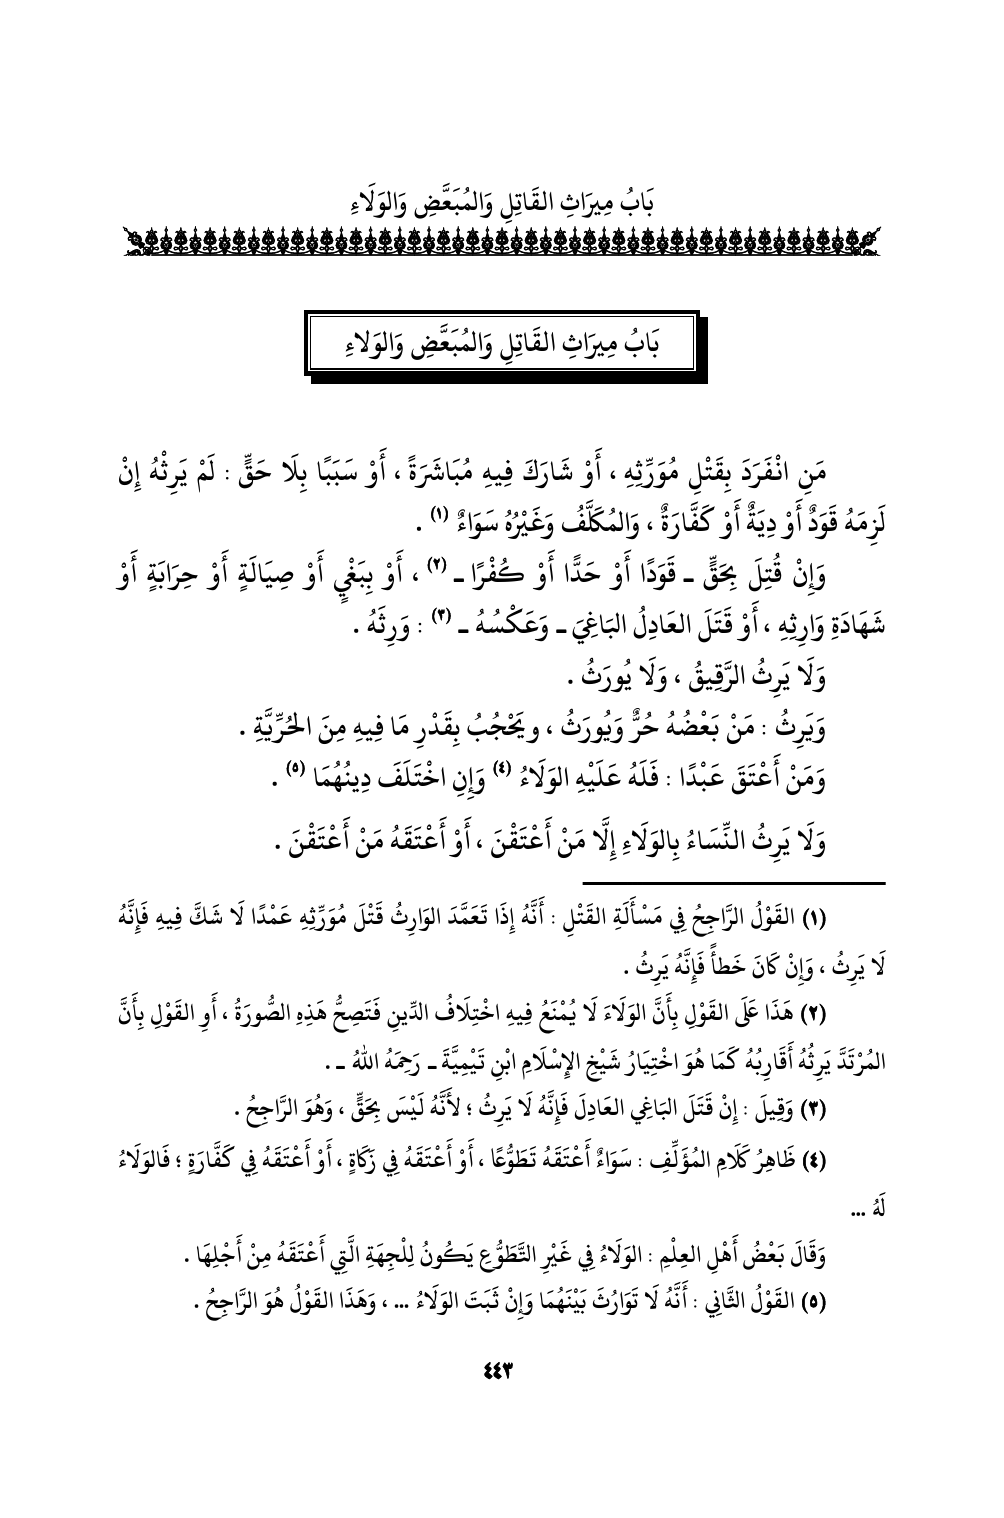 بَابُ مِيرَاثِ القَاتِلِ وَالمُبَعَّضِ وَالوَلَاءِ
بَابُ مِيرَاثِ القَاتِلِ وَالمُبَعَّضِ وَالوَلاءِ
مَنِ انْفَرَدَ بِقَتْلِ مُوَرِّثِهِ ، أَوْ شَارَكَ فِيهِ مُبَاشَرَةً ، أَوْ سَبَبًا بِلَا حَقٍّ : لَمْ يَرِثْهُ إِنْ
لَزِمَهُ قَوَدٌ أَوْ دِيَةٌ أَوْ كَفَّارَةٌ ، وَالمُكَلَّفُ وَغَيْرُهُ سَوَاءٌ (١) .
وَإِنْ قُتِلَ بِحَقٍّ ـ قَوَدًا أَوْ حَدًّا أَوْ كُفْرًا ـ (٢) ، أَوْ بِبَغْيٍ أَوْ صِيَالَةٍ أَوْ حِرَابَةٍ أَوْ
شَهَادَةِ وَارِثِهِ ، أَوْ قَتَلَ العَادِلُ البَاغِيَ ـ وَعَكْسُهُ ـ (٣) : وَرِثَهُ .
وَلَا يَرِثُ الرَّقِيقُ ، وَلَا يُورَثُ .
وَيَرِثُ : مَنْ بَعْضُهُ حُرٌّ وَيُورَثُ ، ويَحْجُبُ بِقَدْرِ مَا فِيهِ مِنَ الحُرِّيَّةِ .
وَمَنْ أَعْتَقَ عَبْدًا : فَلَهُ عَلَيْهِ الوَلَاءُ (٤) وَإِنِ اخْتَلَفَ دِينُهُمَا (٥) .
وَلَا يَرِثُ النِّسَاءُ بِالوَلَاءِ إِلَّا مَنْ أَعْتَقْنَ ، أَوْ أَعْتَقَهُ مَنْ أَعْتَقْنَ .
(١) القَوْلُ الرَّاجِحُ فِي مَسْأَلَةِ القَتْلِ : أَنَّهُ إِذَا تَعَمَّدَ الوَارِثُ قَتْلَ مُوَرِّثِهِ عَمْدًا لَا شَكَّ فِيهِ فَإِنَّهُ
لَا يَرِثُ ، وَإِنْ كَانَ خَطأً فَإِنَّهُ يَرِثُ .
(٢) هَذَا عَلَى القَوْلِ بِأَنَّ الوَلَاءَ لَا يُمْنَعُ فِيهِ اخْتِلَافُ الدِّينِ فَتَصِحُّ هَذِهِ الصُّورَةُ ، أَوِ القَوْلِ بِأَنَّ
المُرْتَدَّ يَرِثُهُ أَقَارِبُهُ كَمَا هُوَ اخْتِيَارُ شَيْخِ الإِسْلَامِ ابْنِ تَيْمِيَّةَ ـ رَحِمَهُ اللهُ ـ .
(٣) وَقِيلَ : إِنْ قَتَلَ البَاغِي العَادِلَ فَإِنَّهُ لَا يَرِثُ ؛ لأَنَّهُ لَيْسَ بِحَقٍّ ، وَهُوَ الرَّاجِحُ .
(٤) ظَاهِرُ كَلَامِ المُؤَلِّفِ : سَوَاءٌ أَعْتَقَهُ تَطَوُّعًا ، أَوْ أَعْتَقَهُ فِي زَكَاةٍ ، أَوْ أَعْتَقَهُ فِي كَفَّارَةٍ ؛ فَالوَلَاءُ
لَهُ ...
وَقَالَ بَعْضُ أَهْلِ العِلْمِ : الوَلَاءُ فِي غَيْرِ التَّطَوُّعِ يَكُونُ لِلْجِهَةِ الَّتِي أَعْتَقَهُ مِنْ أَجْلِهَا .
(٥) القَوْلُ الثَّانِي : أَنَّهُ لَا تَوَارُثَ بَيْنَهُمَا وَإِنْ ثَبَتَ الوَلَاءُ ... ، وَهَذَا القَوْلُ هُوَ الرَّاجِحُ .
٤٤٣